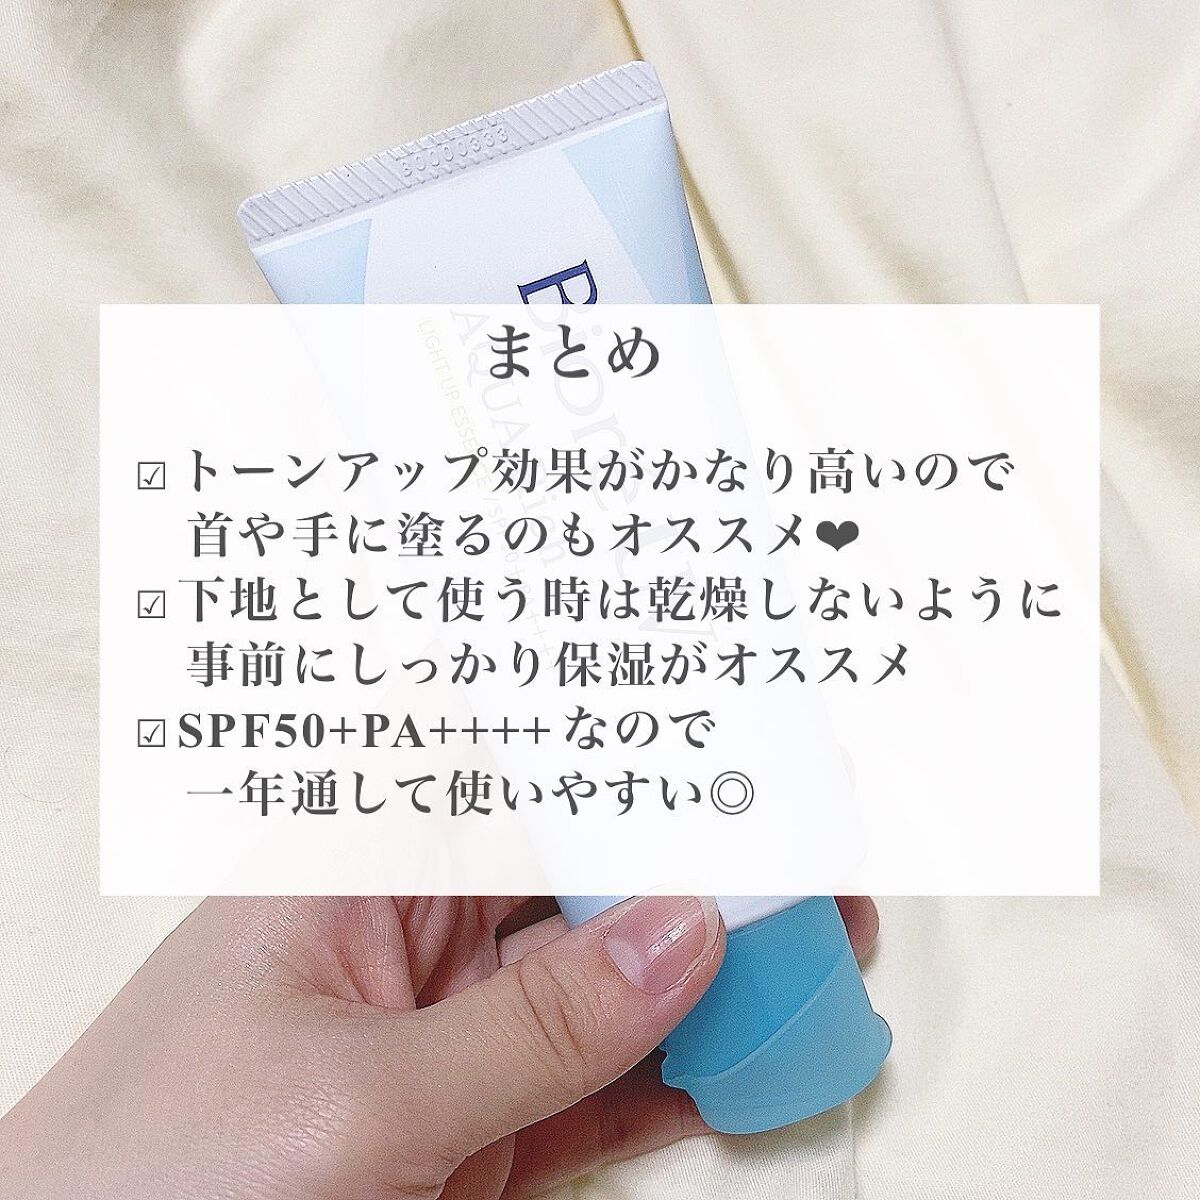 80000333
Bioré UV
AQUA Rich
LIGHT UP ESSENCE / SPF50+ PA++++
まとめ
☑トーンアップ効果がかなり高いので
首や手に塗るのもオススメ❤
☑下地として使う時は乾燥しないように
事前にしっかり保湿がオススメ
☑SPF50+PA++++なので
一年通して使いやすい◎